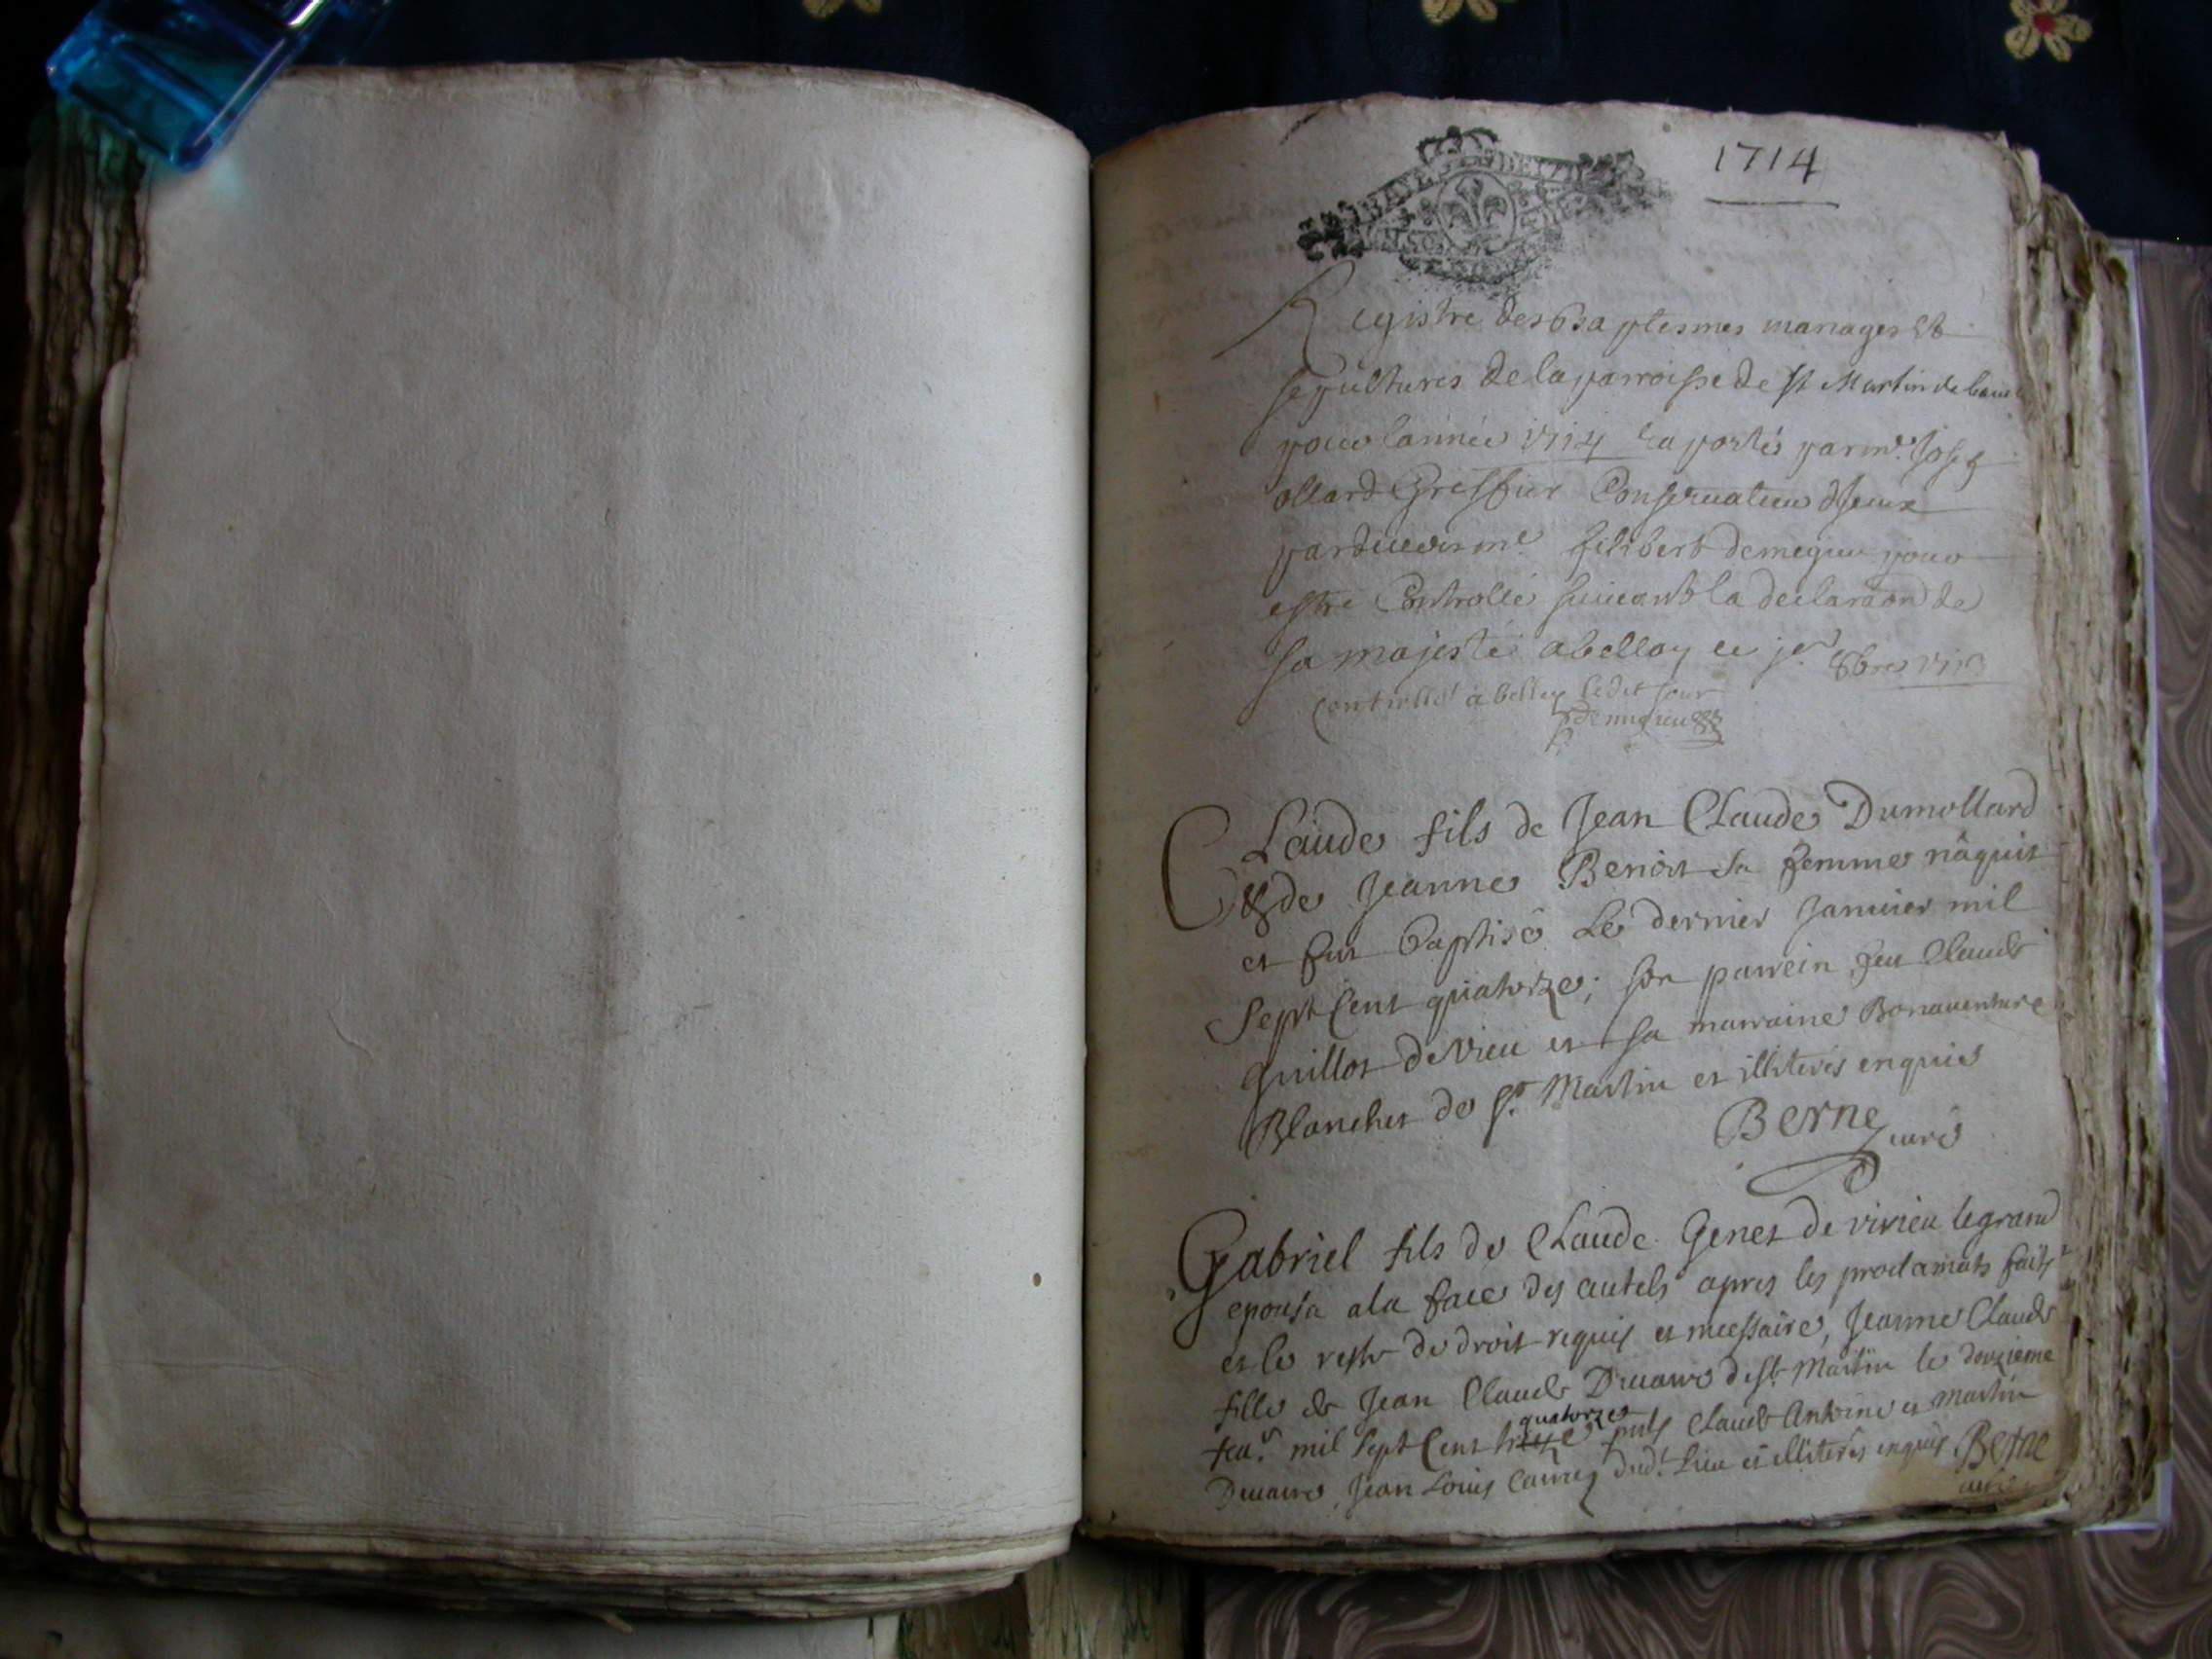 1714
Registre des baptesmes mariages et
sepultures de la parroisse de st Martin de
pour lannée 1714 raportés par me. Josep
ollard Greffier Conservateur
pardevant me. filibert demeyrieu pour
estre Controllé suivant la declaraon de
sa majesté a belley ce jer. 8bre
Controllé a belley ledit jour
demeyrieu
Claude fils de Jean Claude Dumollard
& de Jeanne Benoit sa femme nâquit
et fut baptisé Le dernier Januier mil
Sept Cent quatorze; son parrein feu Claude
guillot de Vieu et sa marraine Bonauenture
Blanchet de St. Martin et illiterés enquis
Berne curé
Gabriel fils de Claude Genet de virieu legrand
epousa a la face des autels apres les proclamats faits
et le reste de droit requis et necessaire, Jeanne Claude
fille de Jean Claude de st Martin le douzieme
feur. mil Sept Cent quatorze pnts Claude Antoine et Martin
Jean Louis dud. Lieu et illiterés enquis Berne
curé